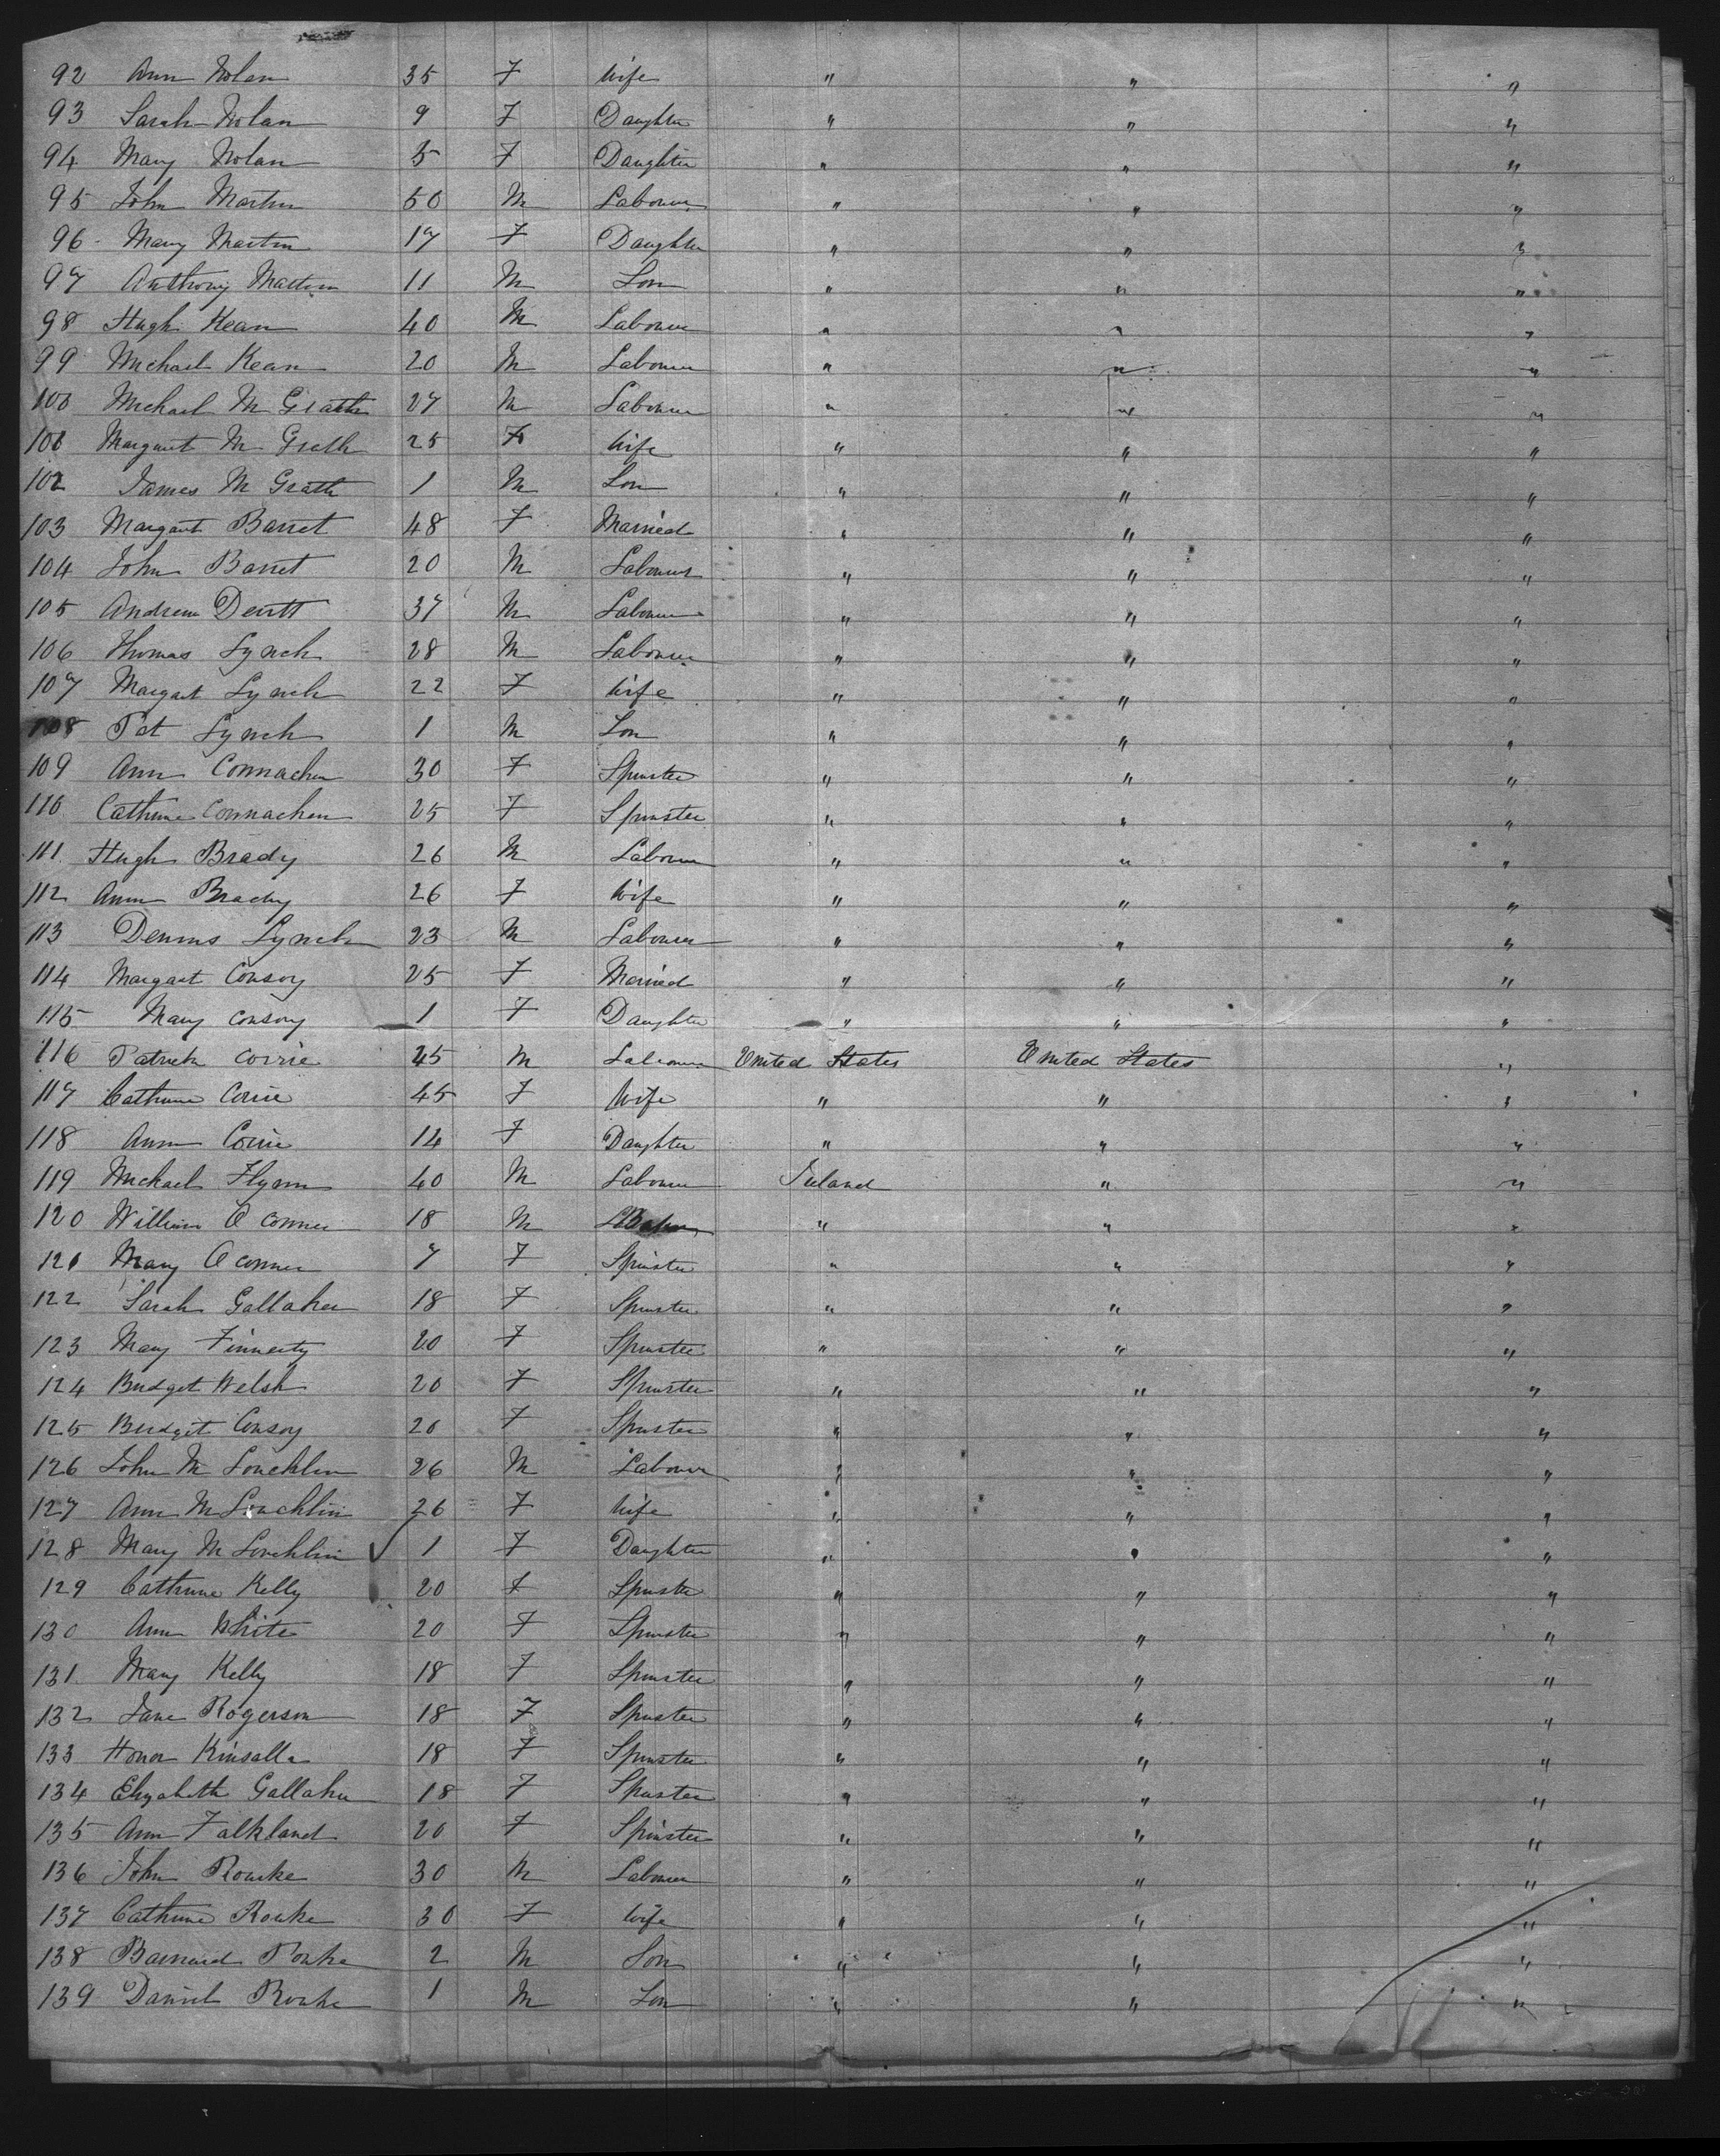 92 Ann Nolan 35 F Wife " " "
93 Sarah Nolan 9 F Daughter " " "
94 Mary Nolan 5 F Daughter " " "
95 John Martin 50 M Labourer " " "
96 Mary Martin 17 F Daughter " " "
97 Anthony Martin 11 M Son " " "
98 Hugh Kean 40 M Labourer " " "
99 Michael Kean 20 M Labourer " " "
100 Michael M Grath 27 M Labourer " " "
101 Margaret M Grath 25 F Wife " " "
102 James M Grath 1 M Son " " "
103 Margaret Barret 48 F Married " " "
104 John Barret 20 M Labourer " " "
105 Andrew Devitt 37 M Labourer " " "
106 Thomas Lynch 28 M Labourer " " "
107 Margaret Lynch 22 F Wife " " "
108 Pat Lynch 1 M Son " " "
109 Ann Connachen 30 F Spinster " " "
110 Cathrine Connachen 25 F Spinster " " "
111 Hugh Brady 26 M Labourer " " "
112 Ann Brady 26 F Wife " " "
113 Dennis Lynch 23 M Labourer " " "
114 Margaret Conroy 25 F Married " " "
115 Mary Conroy 1 F Daughter " " "
116 Patrick Corrie 45 M Labourer United States United States "
117 Cathrine Corrie 45 F Wife " " "
118 Ann Corrie 14 F Daughter " " "
119 Michael Flynn 40 M Labourer Ireland " "
120 William O Conner 18 M " " "
121 Mary O Conner 7 F Spinster " " "
122 Sarah Gallaher 18 F Spinster " " "
123 Mary Finnerty 20 F Spinster " " "
124 Bridget Welsh 20 F Spinster " " "
125 Bridget Conroy 20 F Spinster " " "
126 John M Louchlin 26 M Labourer " " "
127 Ann M Louchlin 26 F Wife " " "
128 Mary M Louchlin 1 F Daughter " " "
129 Cathrine Kelly 20 F Spinster " " "
130 Ann White 20 F Spinster " " "
131 Mary Kelly 18 F Spinster " " "
132 Jane Rogerson 18 F Spinster " " "
133 Honor Kinsalla 18 F Spinster " " "
134 Elizabeth Gallaher 18 F Spinster " " "
135 Ann Falkland 20 F Spinster " " "
136 John Rourke 30 M Labourer " " "
137 Cathrine Rourke 30 F Wife " " "
138 Barnard Rourke 2 M Son " " "
139 Daniel Rourke 1 M Son " " "